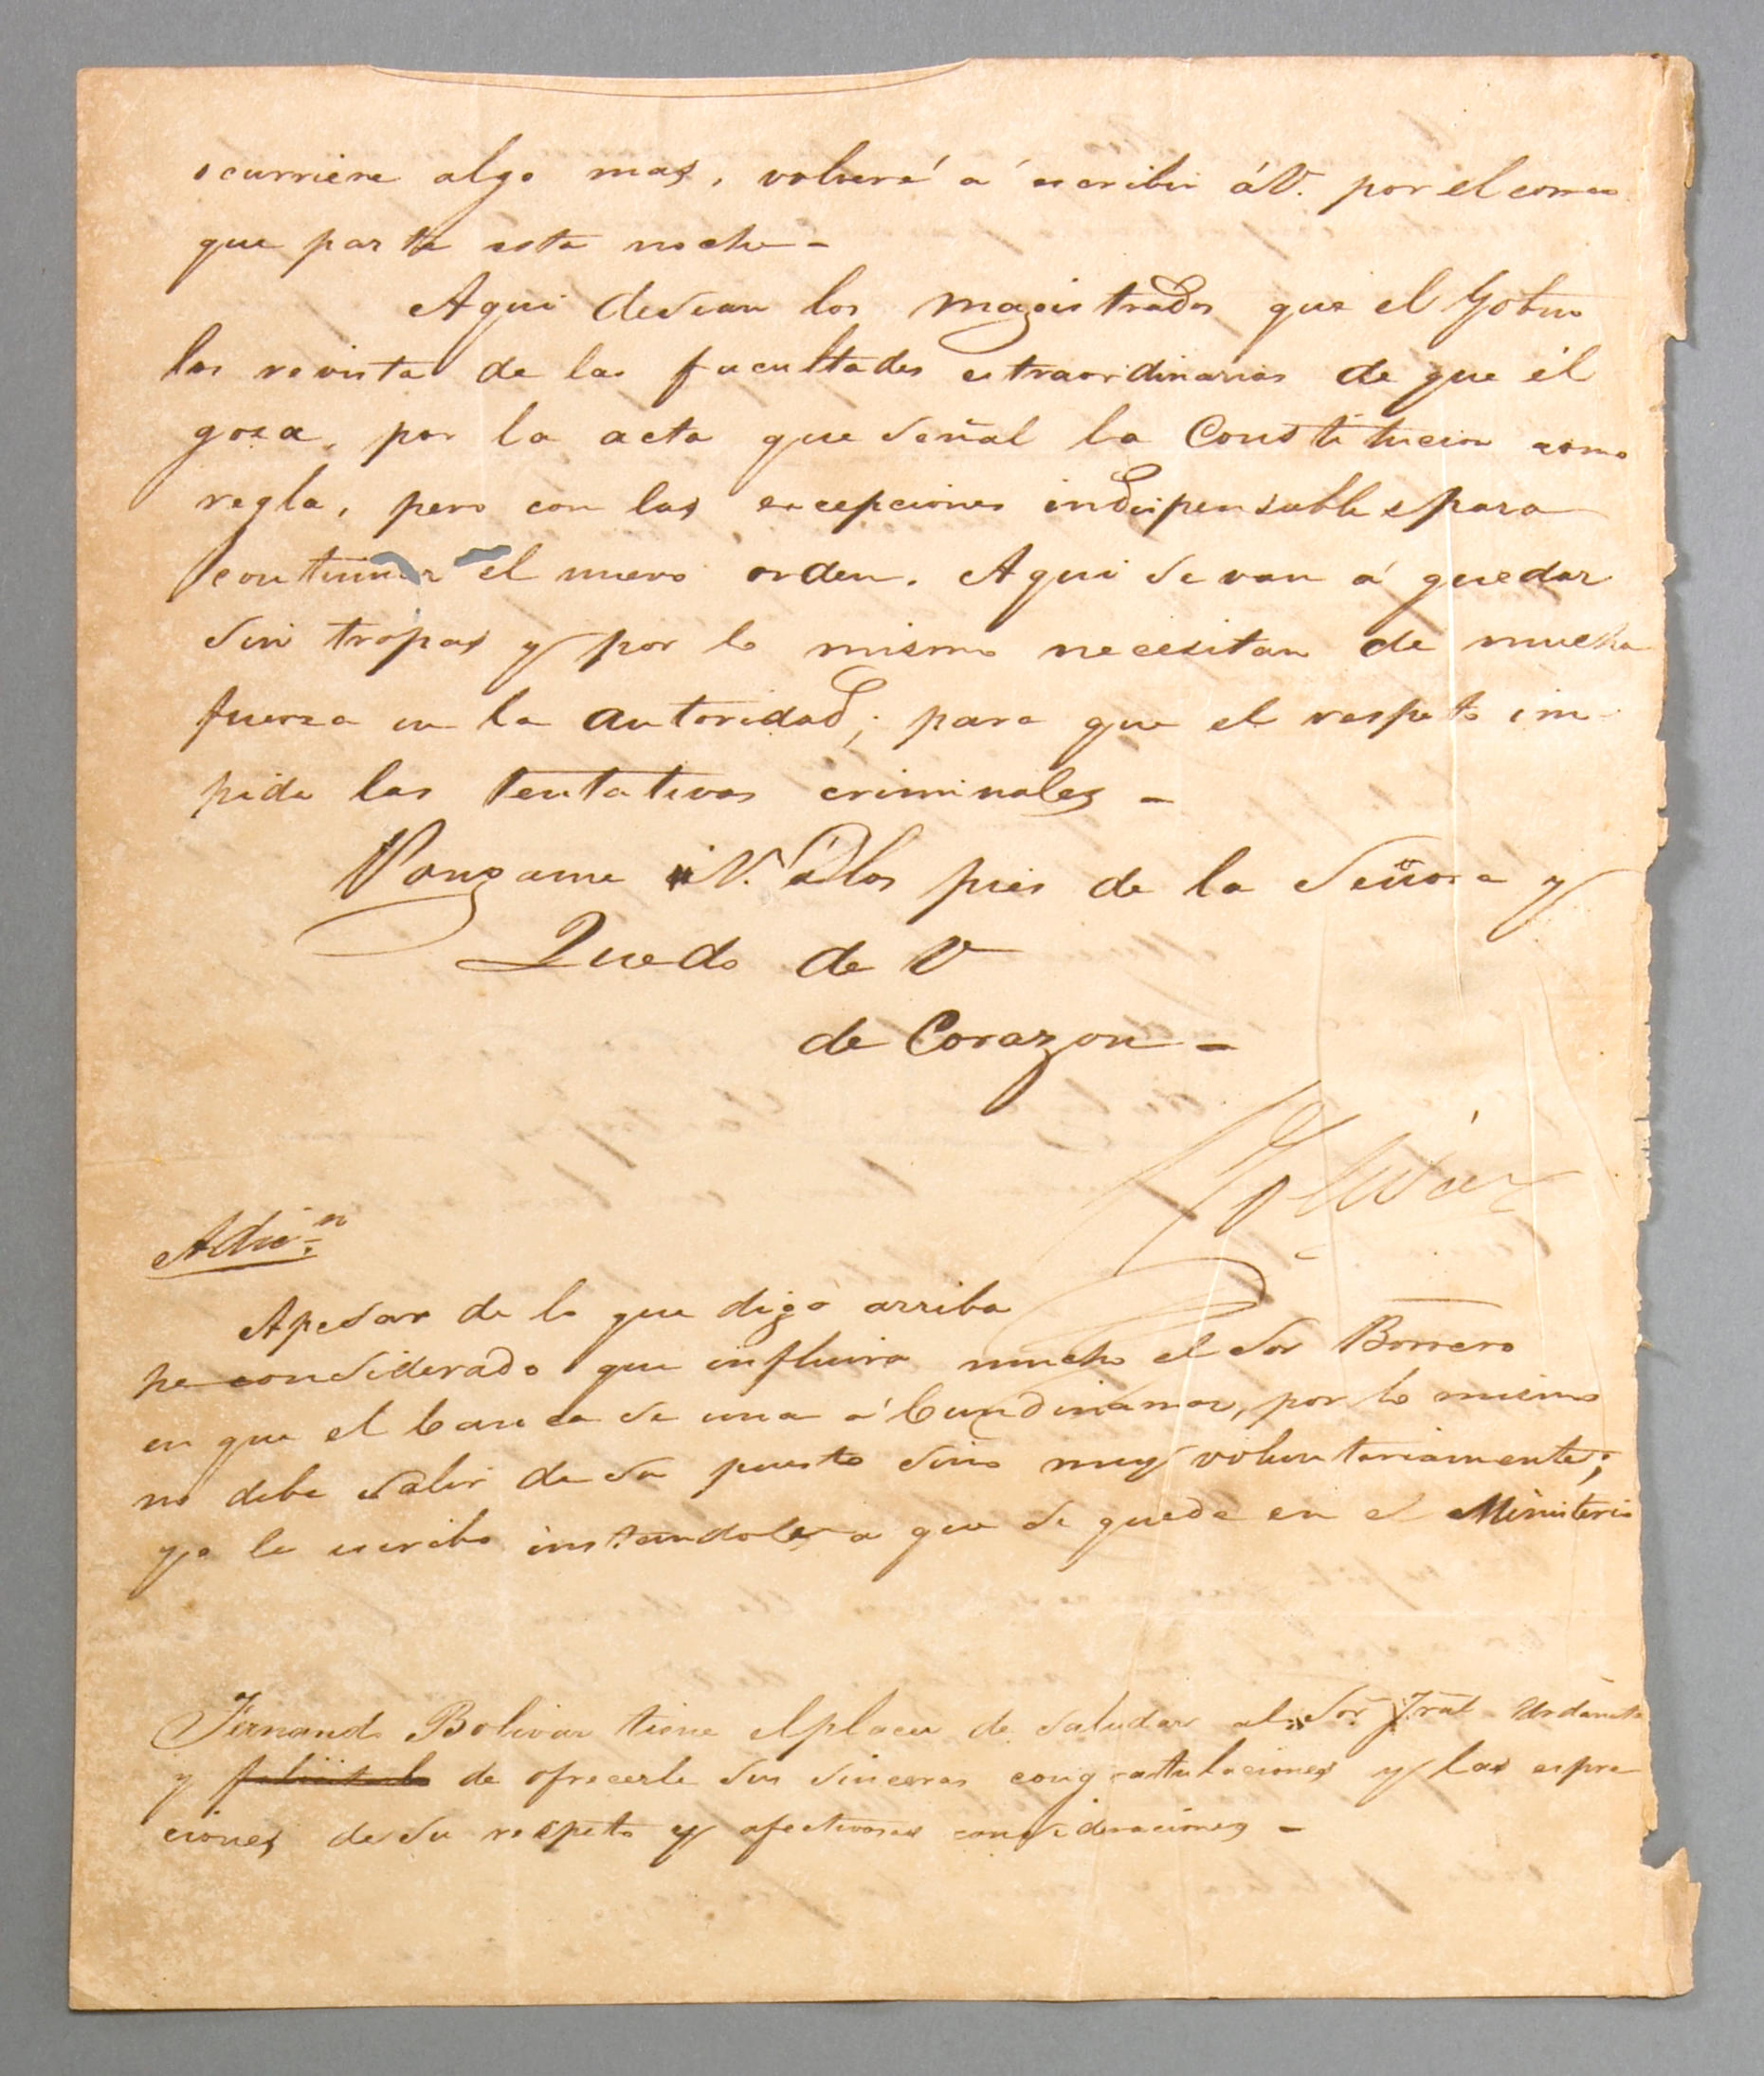 ocurriere algo mas, volveré á escribir á V. por el correo
que parte esta noche –
Aqui desean los magistrados que el Gobno
los revista de las facultades estraordinarias de que él
goza, por la acta que señal la Constitucion como
regla, pero con las excepciones indispensables para
continuar el nuevo orden. Aqui se van á quedar
sin tropas y por lo mismo necesitan de mucha
fuerza en la autoridad; para que el respeto im-
pida las tentativas criminales –
Pongame V. á los pies de la Señora y
Quedo de V
de Corazon –
Bolívar
Adicn.
Apesar de lo que digo arriba
he considerado que influira mucho el Sor Borrero
en que el Cauca se una á Cundinamar, por lo mismo
no debe salir de su puesto sino muy voluntariamente;
yo le escribo instandole a que se quede en el Ministerio
Fernando Bolivar tiene el placer de saludar al Sor Jral Urdaneta
y de ofrecerle sus sinceras congratulaciones y las espre
ciones de su respeto y afectuosas consideraciones –